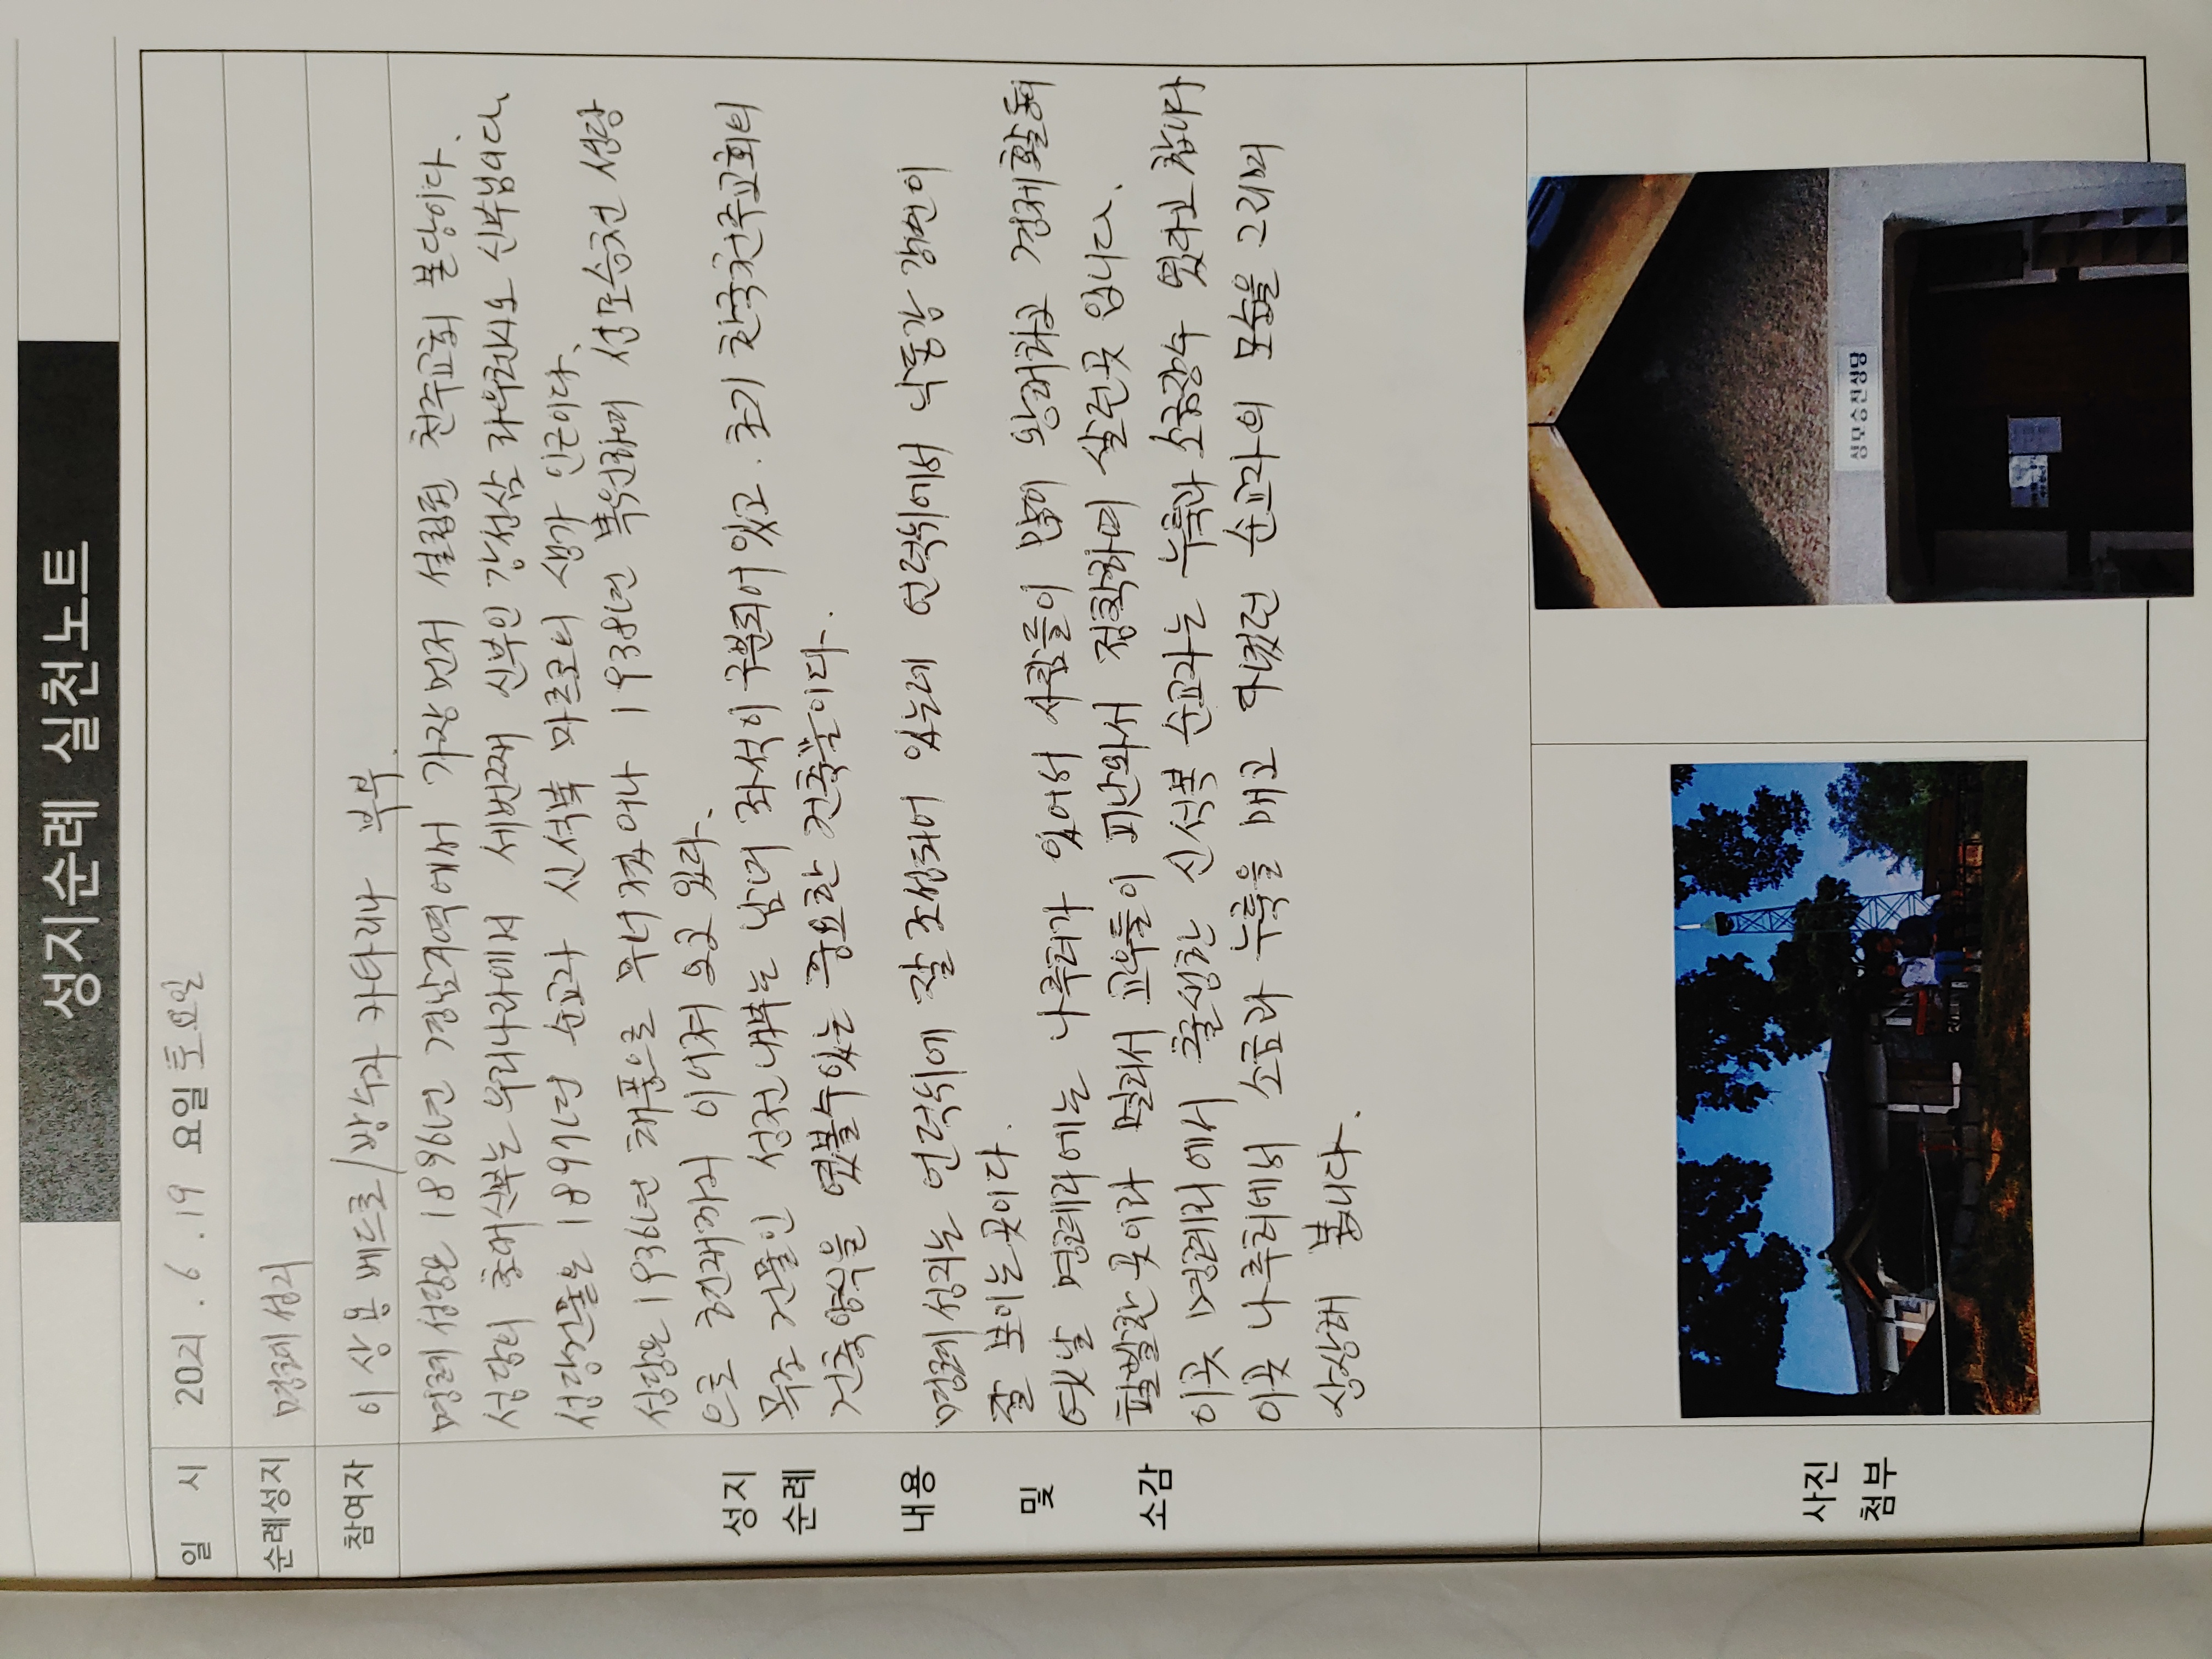 성지순례 실천노트
일 시 2021. 6. 19 요일 토요일
순례성지 명례성지
참여자 이상용 베드로/방수자 가타리나 부부.
성지
순례
내용
및
소감
명례성당은 1896년 경남지역에서 가장먼저 설립된 천주교회 본당이다.
성당의 초대신부는 우리나라에서 세번째 신부인 강성삼 라우렌시오 신부님이다.
성당건물은 1897년 순교자 신석복 마르코의 생가 인근이다.
성당은 1936년 태풍으로 무너졌으나 1938년 복원하여 성모승천 성당
으로 현재까지 이어져 오고 있다.
목조 건물인 성전내부는 남녀 좌석이 구분되어 있고. 초기 한국천주교회의
건축양식을 엿볼수있는 중요한 건축물이다.
명례성지는 언덕위에 잘 조성되어 있는데 언덕위에서 낙동강 강변이
잘 보이는 곳이다.
옛날 명례리에는 나루터가 있어서 사람들이 많이 왕래하고 경제활동이
활발한 곳이라 멀리서 교우들이 피난와서 정착하며 살던곳 입니다.
이곳 명례리에서 출생한 신석복 순교자는 누룩과 소금장수 였다고 합니다
이곳 나루터에서 소금과 누룩을 메고 다녔던 순교자의 모습을 그리며
상상해 봅니다.
사진
첨부
성모승천성당